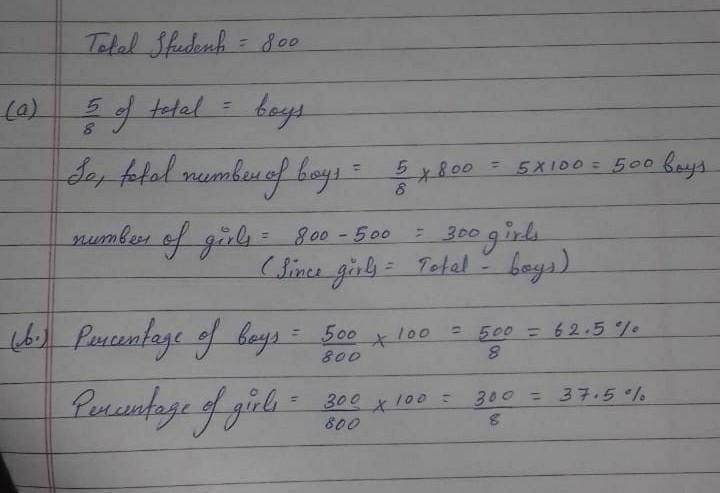 Total Students = 800
(a) 5/8 of total = boys
So, total number of boys = 5/8 × 800 = 5×100 = 500 boys
number of girls = 800 - 500 = 300 girls
(Since girls = Total - boys)
(b.) Percentage of boys = 500/800 × 100 = 500/8 = 62.5 %
Percentage of girls = 300/800 × 100 = 300/8 = 37.5 %